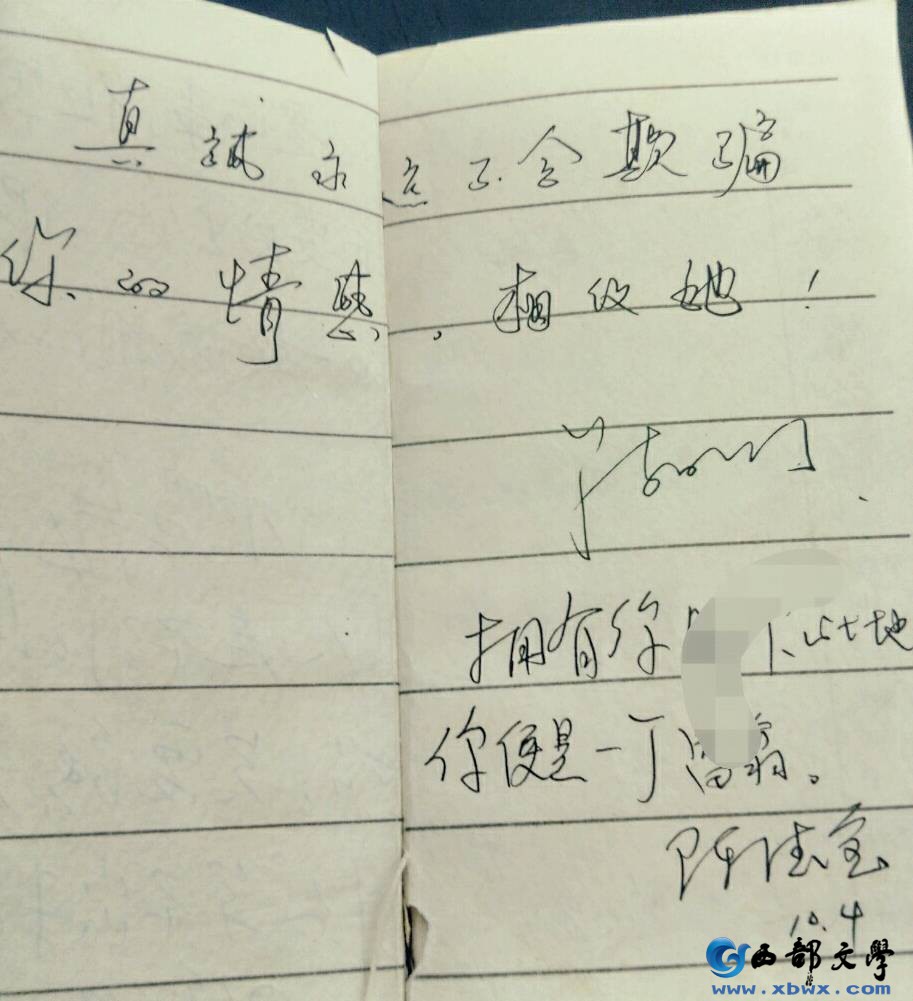 真誠永远不会欺骗
你的情感，相仪她！
拥有你 地
你便是一个富翁。
陈德宝
10.4
西部文學
www.xbwx.com